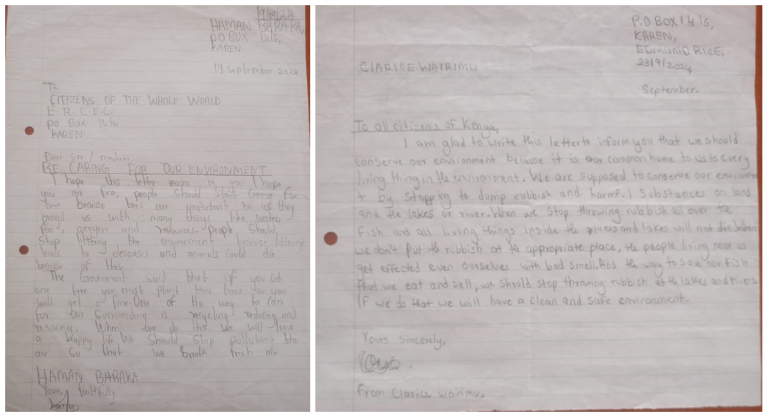 HAMAN BARAKA
P.O BOX
KAREN
14 September 2024
To
CITIZENS OF THE WHOLE WORLD
E.R.C.E.C
PO Box
KAREN
Dear Sir / madam
RE: CARING FOR OUR ENVIRONMENT
I hope this letter you I hope
you are fine, people should
because are important to us they
us with many things like water
Food, oxygen and People Should
Stop the environment because
leads to diseases and animals could die
because of this.
The Government said that if you cut
one tree you must plant two trees or you
will get a fine. One of the way to care
for our surrounding is recycling reducing and
reusing. When we do this we will have
a happy life We Should Stop polluting the
air So that we breath fresh air
HAMAN BARAKA
Yours faithfully
P.O BOX
KAREN,
EDMUND RICE,
23/9/2024
CLARICE WAIRIMU
September.
To all citizens of Kenya,
I am glad to write this letter to inform you that we should
conserve our environment because it is our common home to us to every
living thing in the environment. We are supposed to conserve our environment
by stopping to dump rubbish and harmful substances on land
and the lakes or river. When we stop throwing rubbish all over the
fish and all living things inside the rivers and lakes will not die.
we don't put the rubbish at the appropriate place, the people living near us
get affected even ourselves with bad smell. And the way to save our fish
that we eat and sell, we should stop throwing rubbish at the lakes and rivers
If we do that we will have a clean and safe environment.
Yours sincerely,
From Clarice wairimu.